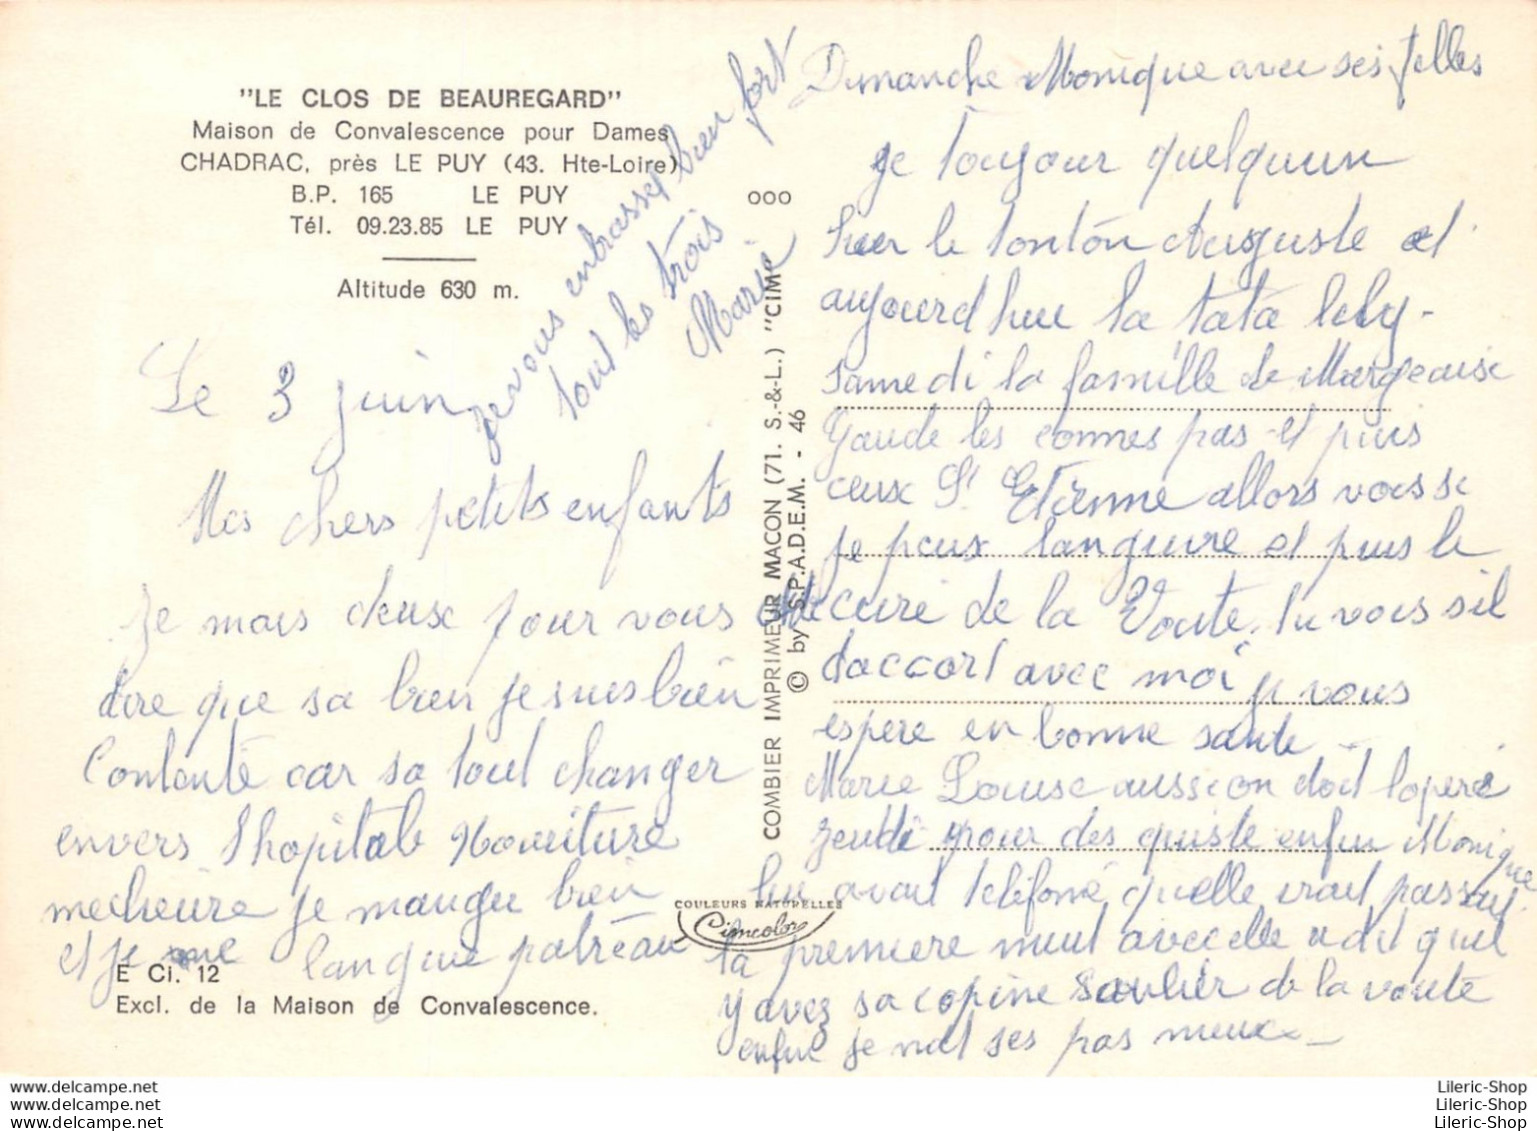 "LE CLOS DE BEAUREGARD"
Maison de Convalescence pour Dames
CHADRAC, près LE PUY (43. Hte-Loire)
B.P. 165 LE PUY
Tél. 09.23.85 LE PUY
Altitude 630 m.
Le 3 juin
Mes chers petits enfants
Je mais deux pour vous
dire que sa bien je suis bien
Contente car sa tout changer
envers l hopital Nouriture
meilieure je mange bien
et je me langui
E Ci. 12
Excl. de la Maison de Convalescence.
je vous enbrasse bien fort
tout les trois
Marie
ooo
COMBIER IMPRIMEUR MACON (71. S.-&-L.) "CIM"
© by S.P.A.D.E.M. - 46
COULEURS NATURELLES
Cimcolor
Dimanche Monique avec ses filles
je toujour quelquun
hier le tonton Auguste et
aujourd hui la tata
samedi la famille de
les connes pas et puis
ceux St Etienne allors vois si
je peux languire et puis le
curé de la Voute. tu vois sil
daccort avec moi je vous
espere en bonne sante
Marie Louise aussi on doit lopere
jeudi pour des quiste enfin Monique
lui avait téléfoné quelle irait passay
la premiere nuit avec elle a dit quil
y avez sa copine de la voute
enfin je nat ses pas mieux
Lileric-Shop
Lileric-Shop
Lileric-Shop
www.delcampe.net
www.delcampe.net
www.delcampe.net